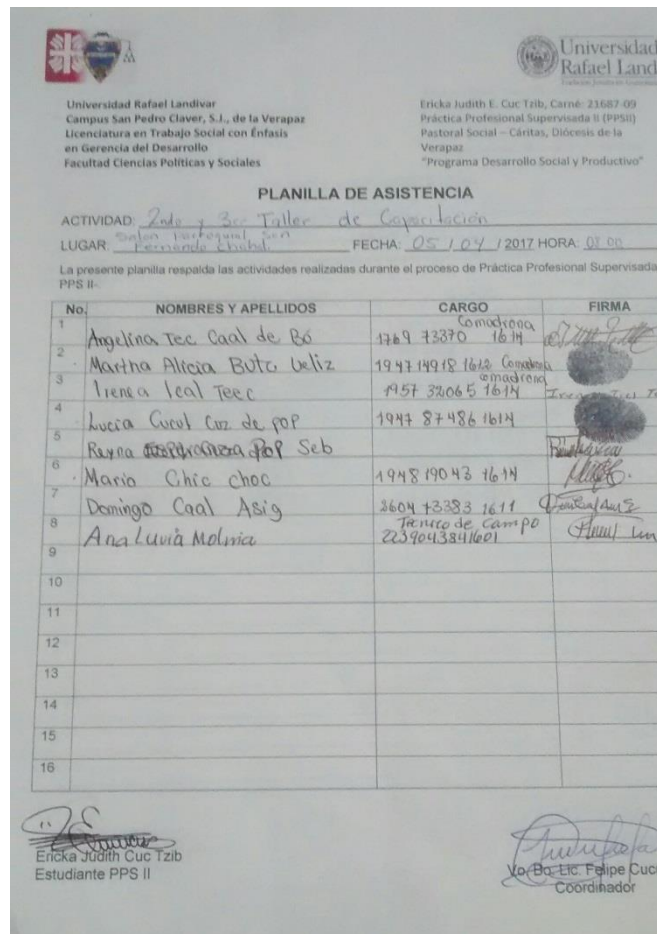 Universidad
Rafael Land
Universidad Rafael Landívar
Campus San Pedro Claver, S.J., de la Verapaz
Licenciatura en Trabajo Social con Énfasis
en Gerencia del Desarrollo
Facultad Ciencias Políticas y Sociales
Ericka Judith E. Cuc Tzib, Carné: 21687-09
Práctica Profesional Supervisada II (PPSII)
Pastoral Social – Cáritas, Diócesis de la
Verapaz
"Programa Desarrollo Social y Productivo"
PLANILLA DE ASISTENCIA
ACTIVIDAD: 2ndo y 3cr Taller de Capacitación
LUGAR: Salon Parroquial San Fernando Chahal FECHA: 05 / 04 / 2017 HORA: 08 00
La presente planilla respalda las actividades realizadas durante el proceso de Práctica Profesional Supervisada
PPS II-
No. NOMBRES Y APELLIDOS CARGO FIRMA
1 Angelina Tec Caal de Bó 1769 73370 1614 Comadrona
2 Martha Alicia Butz Veliz 1947 14918 1612 Comadrona
3 Irenea Ical Teec 1957 32065 1614 Comadrona
4 Lucia Cucul Cuz de pop 1947 87486 1614
5 Reyna Pop Seb
6 Mario Chic choc 1948 19043 1614
7 Domingo Caal Asig 2604 73383 1611
8 Ana Luvia Molina Tecnico de campo
2239043841601
9
10
11
12
13
14
15
16
Ericka Judith Cuc Tzib
Estudiante PPS II
Vo.Bo. Lic. Felipe Cuc
Coordinador